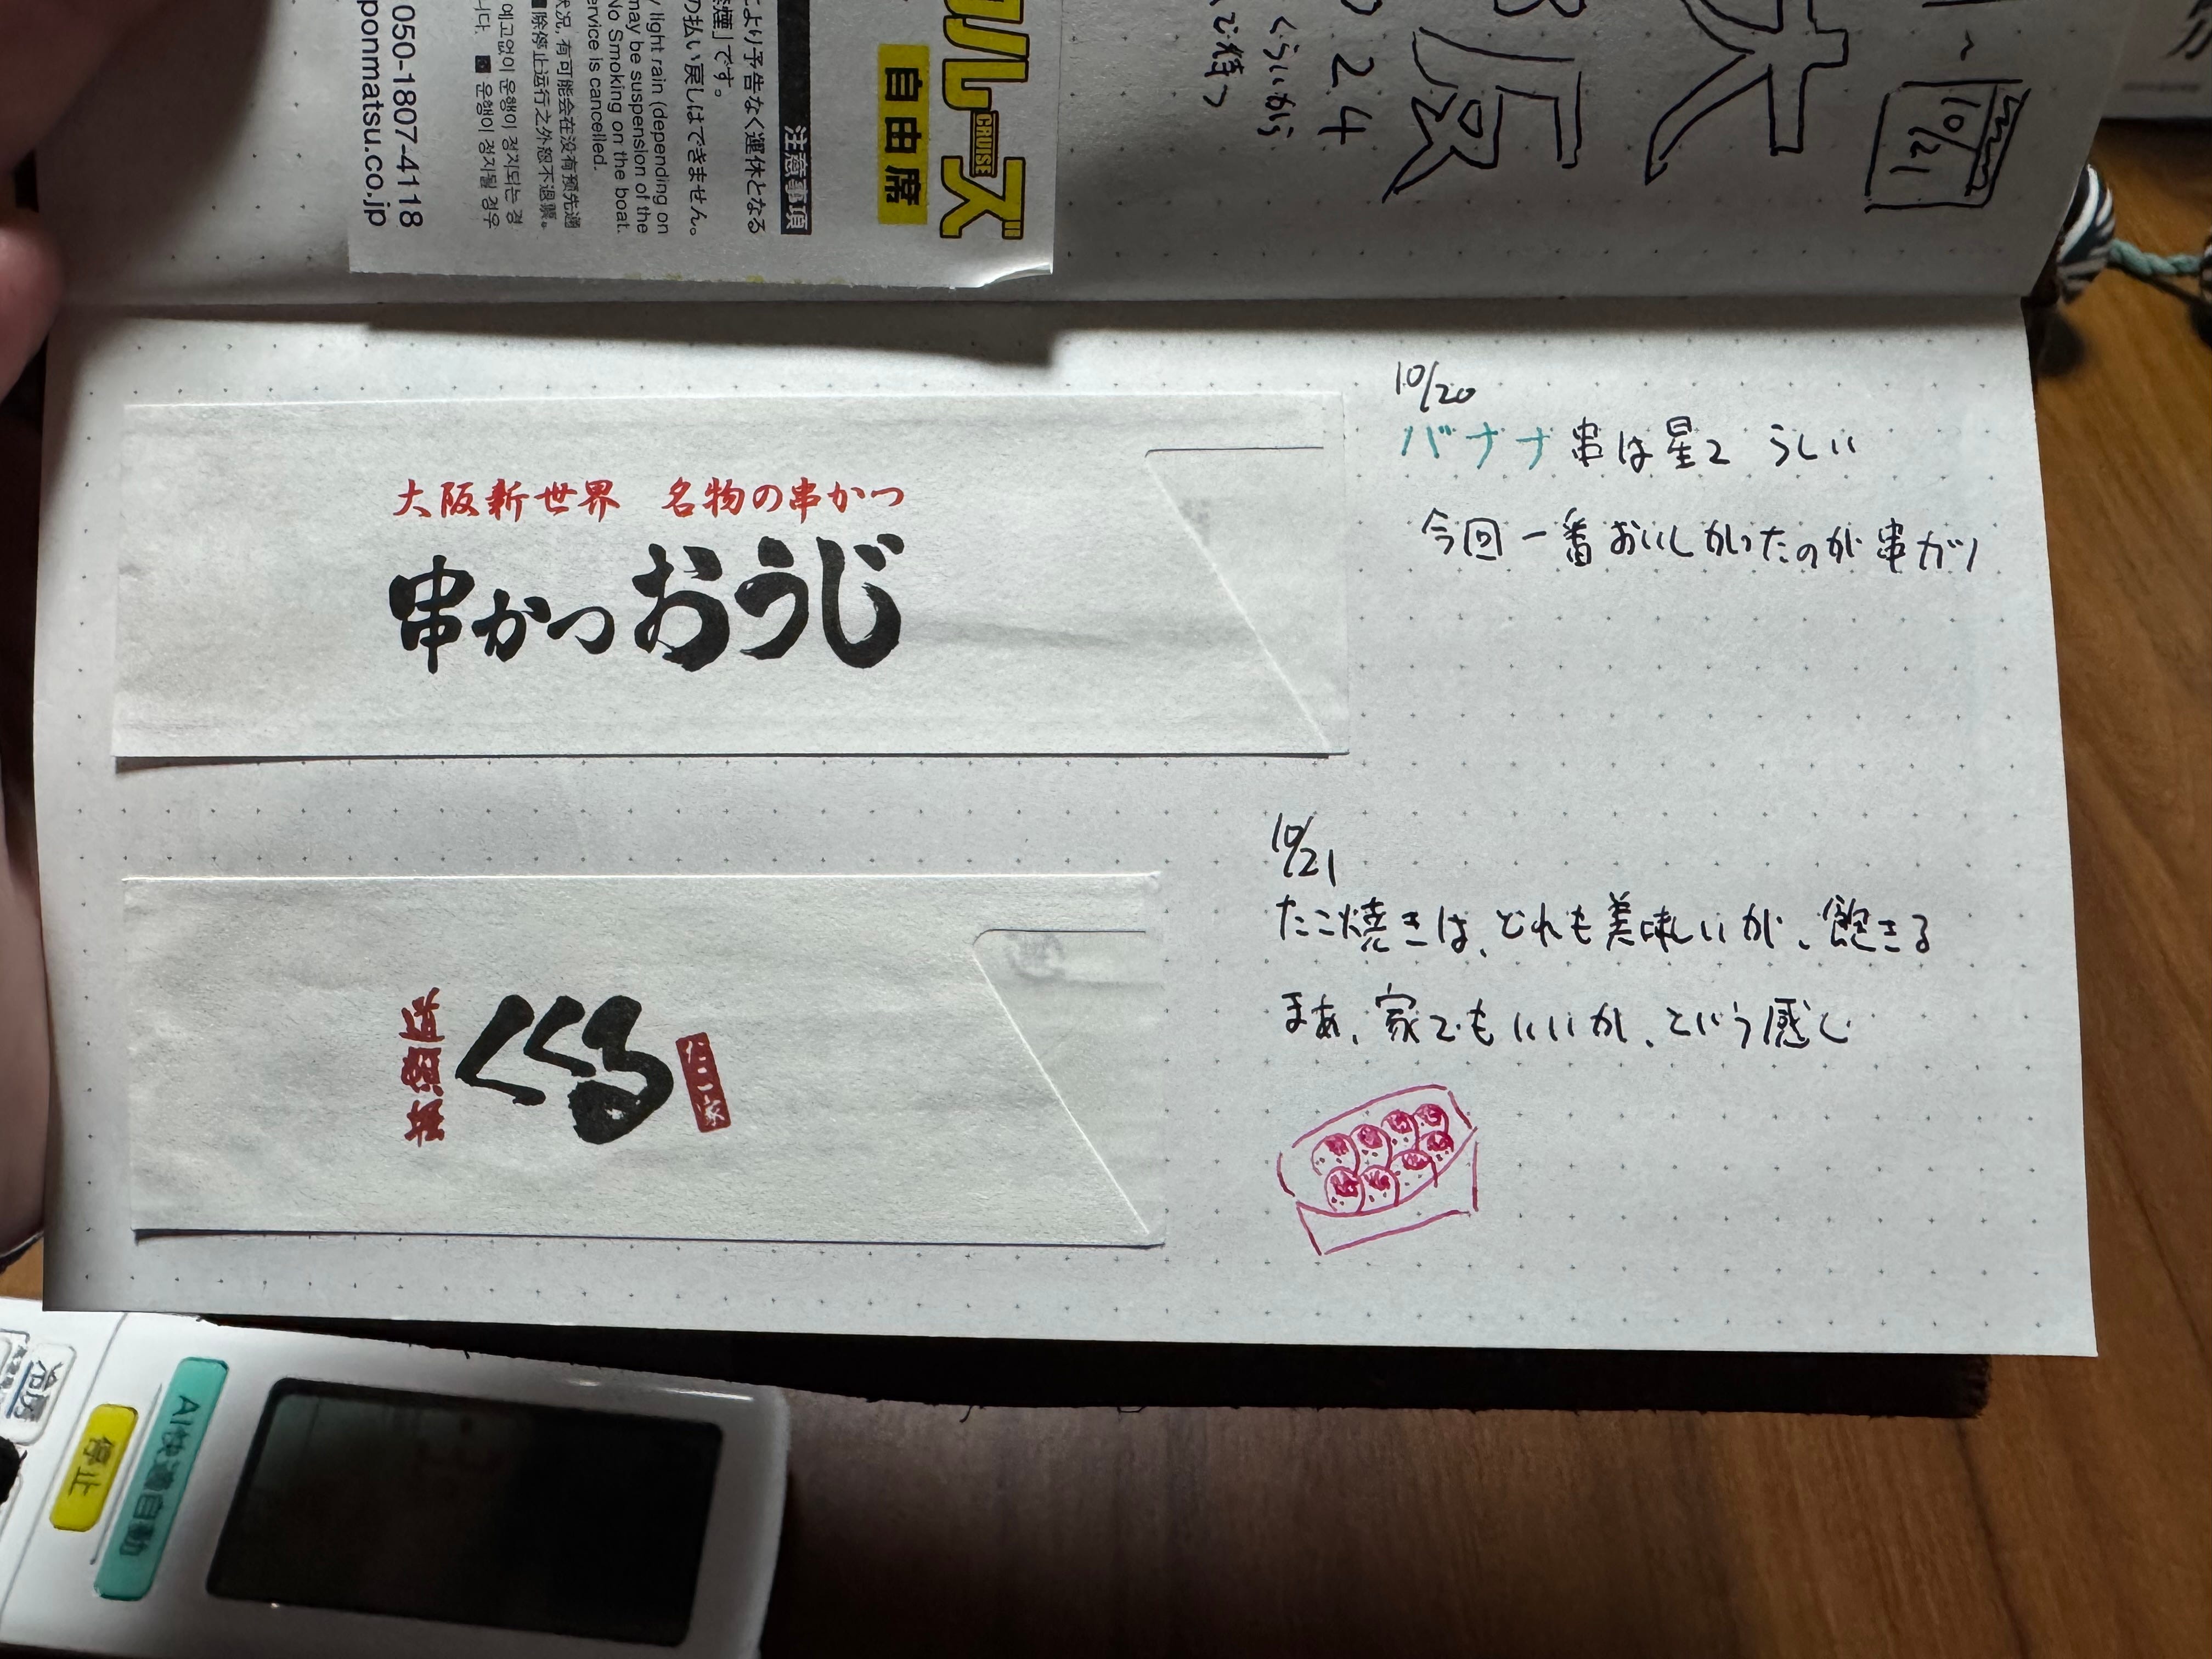 10/21
大阪
24
くらいから
で待つ
クルーズ
CRUISE
自由席
注意事項
により予告なく運休となる
の払い戻しはできません。
light rain (depending on
may be suspension of the
No Smoking on the boat.
ervice is cancelled.
状况,有可能会在没有预先通
除停止运行之外恕不退票。
예고없이 운행이 정지되는 경
니다. 운행이 정지될 경우
050-1807-4118
ponmatsu.co.jp
大阪新世界 名物の串かつ
串かつおうじ
10/20
バナナ串は星2 らしい
今回一番おいしかったのが串カツ
道頓堀
くくる
たこ家
10/21
たこ焼きは、どれも美味しいが、飽きる
まあ、家でもいいか、という感じ
冷房
停止
AI快適自動